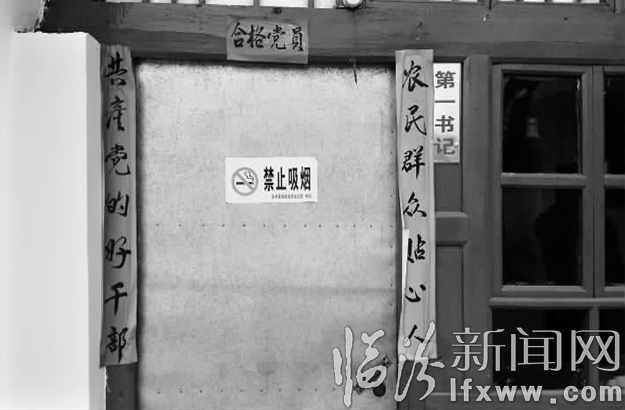 合格党员
农民群众贴心人
共产党的好干部
第一书记
禁止吸烟
临汾新闻网
lfxww.com